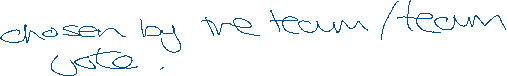 chosen by the team/team
vote.